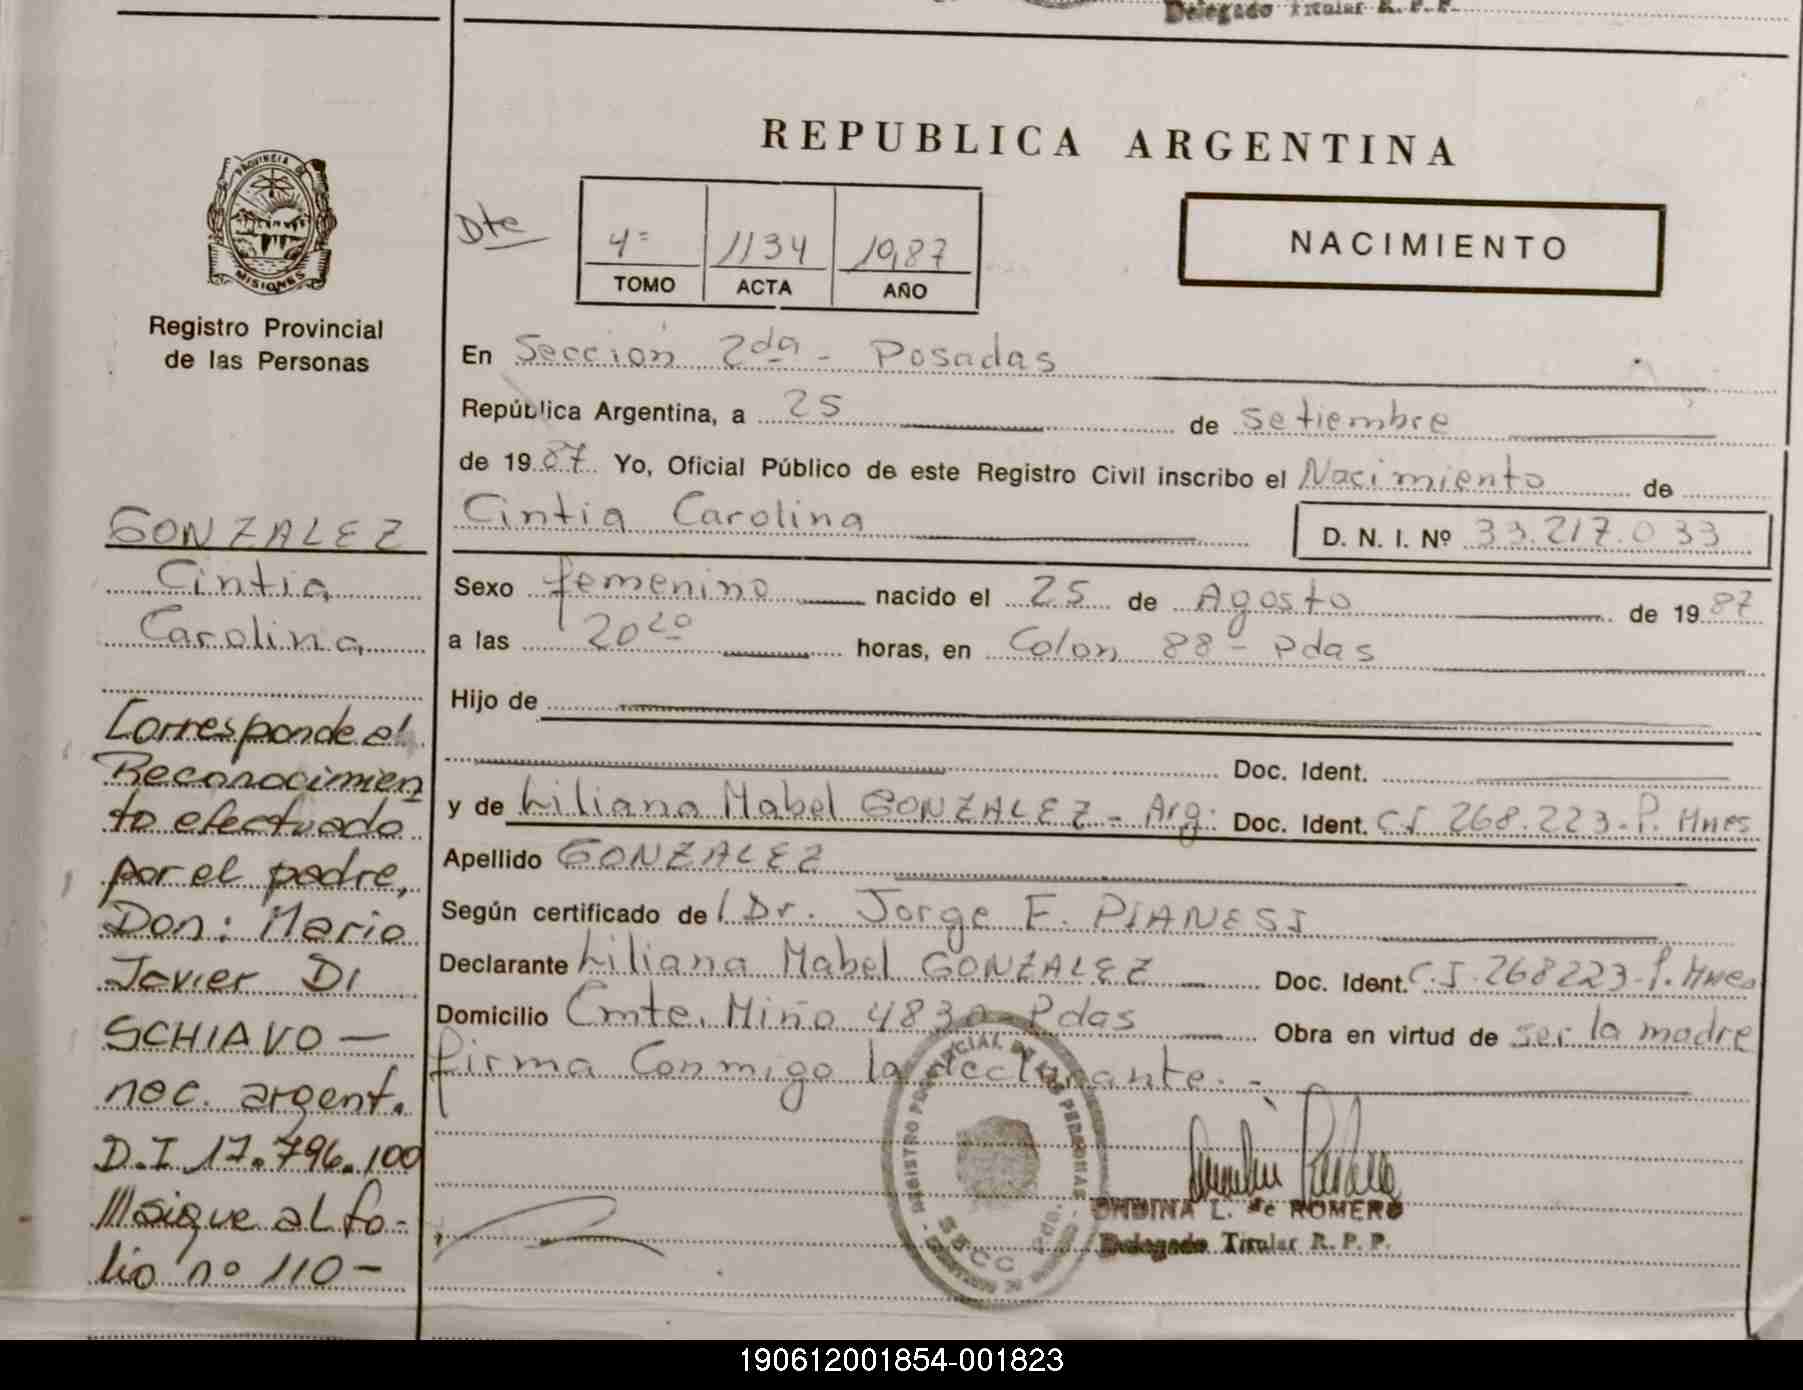 Delegado Titular R. P. P.
REPUBLICA ARGENTINA
PROVINCIA DE
MISIONES
Registro Provincial
de las Personas
Dte
4º 1134 19,87
TOMO ACTA AÑO
NACIMIENTO
En Sección 2da - Posadas
República Argentina, a 25 de Setiembre
de 19 87 Yo, Oficial Público de este Registro Civil inscribo el Nacimiento de
Cintia Carolina D. N. I. Nº 33.217.033
Sexo femenino nacido el 25 de Agosto de 19 87
a las 20 20 horas, en Colon 88 - Pdas
Hijo de
Doc. Ident.
y de Liliana Mabel GONZALEZ - Arg. Doc. Ident. C.I 268.223-P. Mnes
Apellido GONZALEZ
Según certificado de l Dr. Jorge E. PIANESI
Declarante Liliana Mabel GONZALEZ Doc. Ident. C.I. 268223-P. Mnes
Domicilio Cmte. Miño 4830 - Pdas Obra en virtud de ser la madre
firma Conmigo la declarante. -
REGISTRO PROVINCIAL DE LAS PERSONAS
SECC
ONDINA L. de ROMERO
Delegado Titular R. P. P.
GONZALEZ
Cintia
Carolina
Corresponde el
Reconocimien
to efectuado
por el padre,
Don: Mario
Javier DI
SCHIAVO —
nac. argent.
D.I 17.796.100
///sigue al fo-
lio nº 110 -
190612001854-001823